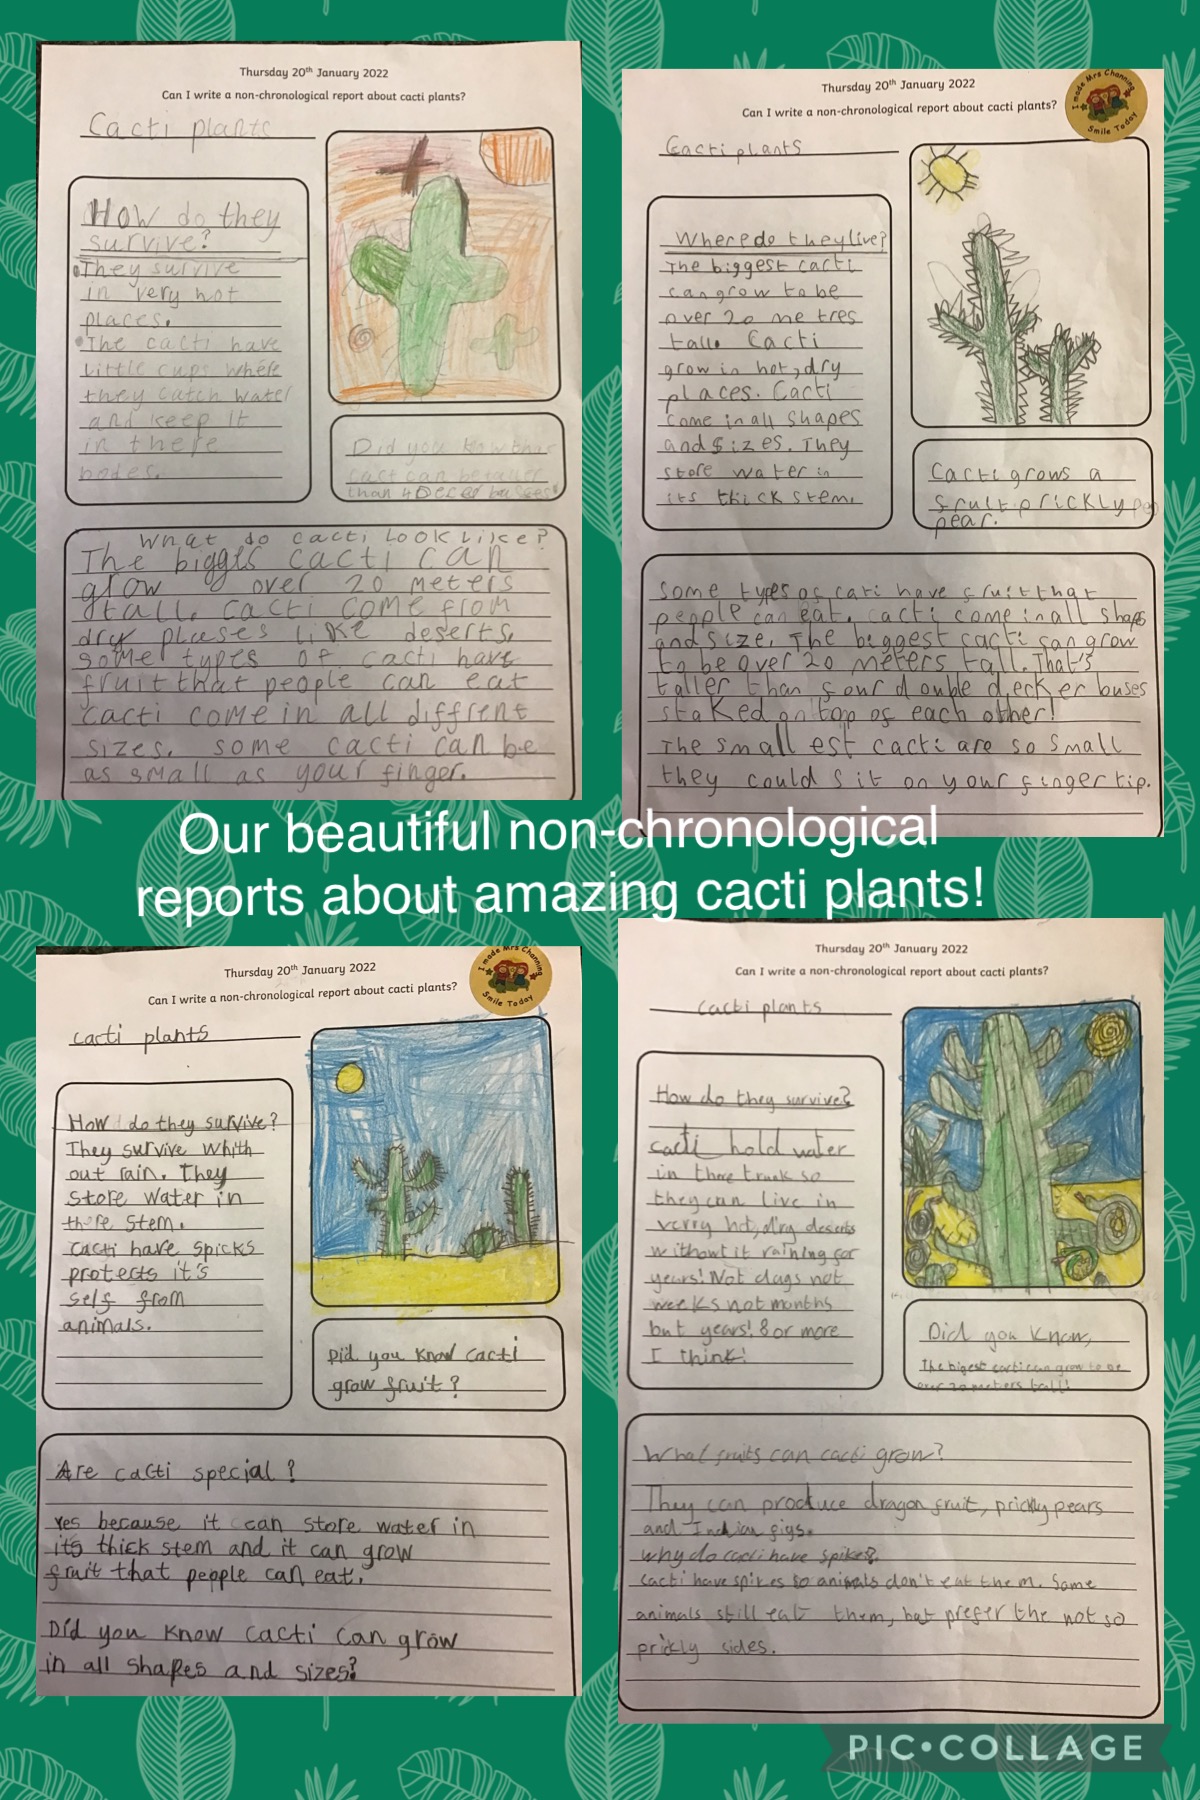 Thursday 20th January 2022
Can I write a non-chronological report about cacti plants?
Cacti plants
How do they
survive?
They survive
in very hot
places.
The cacti have
little cups where
they catch water
and keep it
in there
bodes.
Did you know that
cacti can be taller
than 4
What do cacti look like?
The bigges cacti can
grow over 20 meters
tall. cacti come from
dry plases like deserts.
some types of cacti have
fruit that people can eat
cacti come in all diffrent
sizes. some cacti can be
as small as your finger.
Thursday 20th January 2022
Can I write a non-chronological report about cacti plants?
I made Mrs Channing
Smile Today
Cacti plants
Where do they live?
The biggest cacti
can grow to be
over 20 metres
tall. Cacti
grow in hot, dry
places. Cacti
come in all shapes
and sizes. They
store water in
its thick stem.
Cacti grows a
fruit prickly
pear.
Some types of cati have fruit that
people can eat. cacti come in all shaps
and size. The biggest cacti can grow
to be over 20 meters tall. That's
taller than four double decker buses
staked on top of each other!
The smallest cacti are so small
they could sit on your finger tip.
Our beautiful non-chronological
reports about amazing cacti plants!
Thursday 20th January 2022
Can I write a non-chronological report about cacti plants?
I made Mrs Channing
Smile Today
cacti plants
How do they survive?
They survive whith
out rain. They
store water in
there stem.
cacti have spicks
protects it's
self from
animals.
Did you know cacti
grow fruit?
Are cacti special?
yes because it can store water in
its thick stem and it can grow
fruit that people can eat.
Did you know cacti can grow
in all shapes and sizes?
Thursday 20th January 2022
Can I write a non-chronological report about cacti plants?
Cacti plants
How do they survive?
cacti hold water
in there trunk so
they can live in
verry hot, dry deserts
without it raining for
years! Not days not
weeks not months
but years! 8 or more
I think!
Did you know,
The bigest cacti can grow to be
over 20 meters tall!
What fruits can cacti grow?
They can produce dragon fruit, prickly pears
and Indian figs.
why do cacti have spikes?
cacti have spikes so animals don't eat them. Some
animals still eat them, but prefer the not so
prickly sides.
PIC•COLLAGE